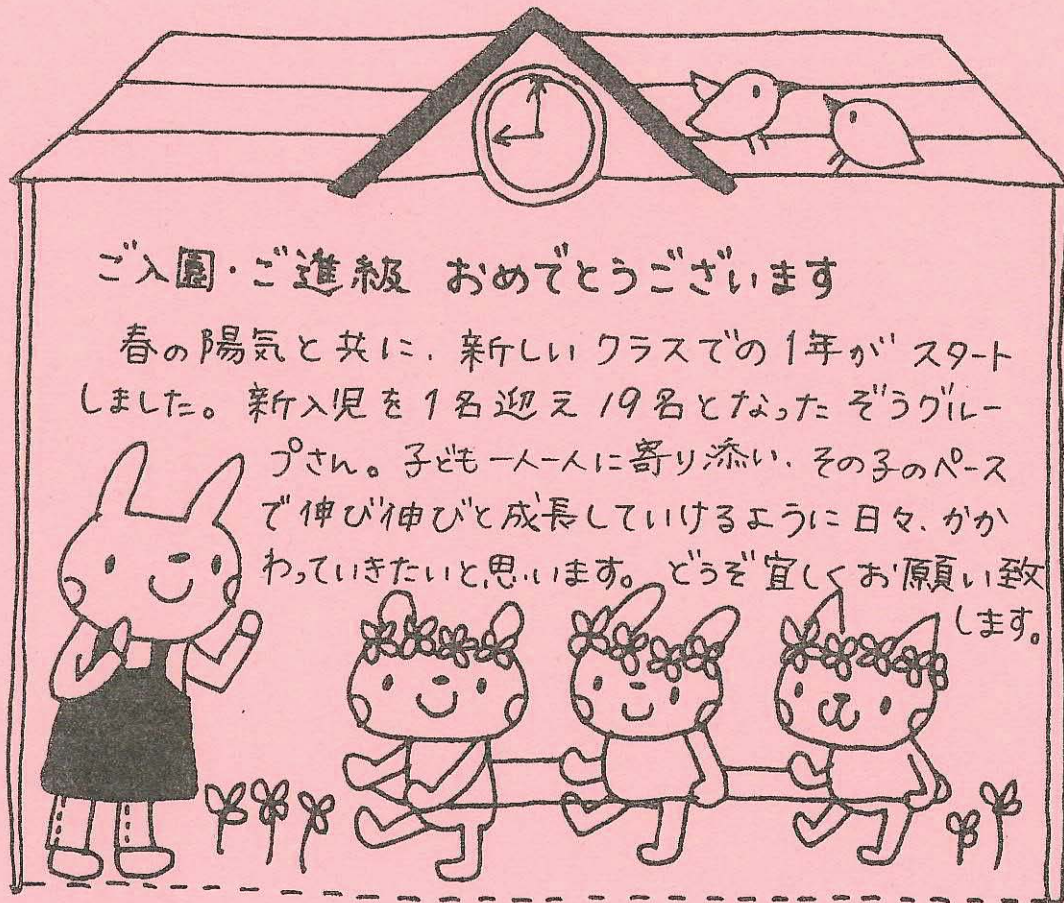 ご入園・ご進級 おめでとうございます
春の陽気と共に、新しいクラスでの1年がスタート
しました。新入児を1名迎え19名となったぞうグルー
プさん。子ども一人一人に寄り添い、その子のペース
で伸び伸びと成長していけるように日々、かか
わっていきたいと思います。どうぞ宜しくお願い致
します。